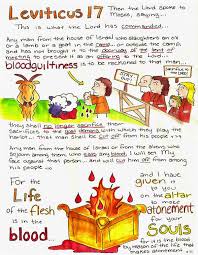 Leviticus 17 Then the Lord spoke to
Moses, saying...
This is what the Lord has commanded...
Any man from the house of Israel who slaughters an ox
or a lamb or a goat in the camp... or outside the camp,
and has not brought it to the doorway of the tent of
meeting to present it as an offering to the Lord
bloodguiltiness is to be reckoned to that man...
they shall no longer sacrifice their
sacrifices to the goat demons with which they play the
harlot. that man shall be cut off from his people
Any man from the house of Israel or from the aliens who
sojourn among them who eats any blood, I will set My
face against that person and will cut him off from among
his people...
For the
Life
of the flesh
is in the
blood
and I have
given it
to you on
the altar
to make
atonement
for your
Souls
for it is the blood
by reason of the life
that makes atonement